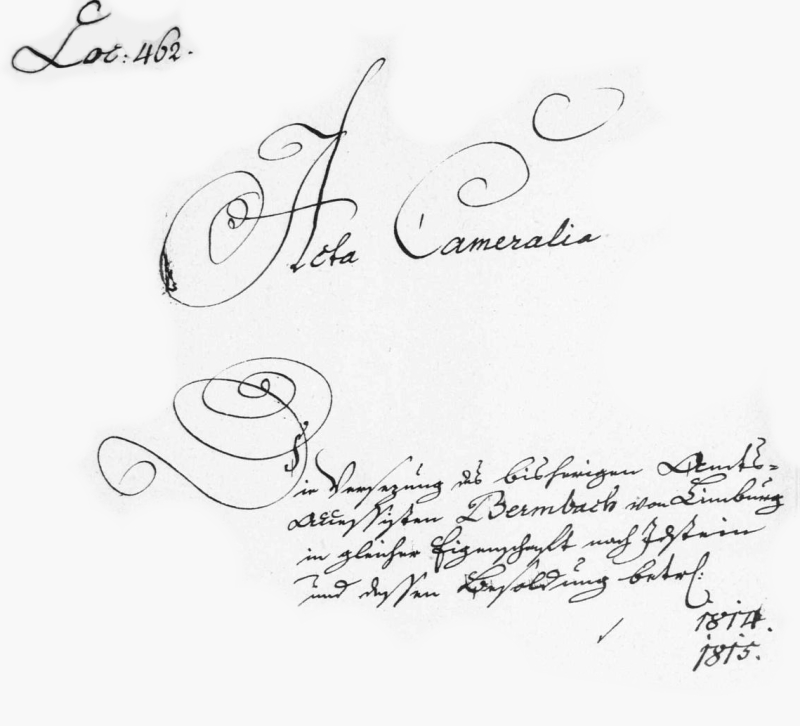 Loc: 462.
Acta Cameralia
Die Versezung des bisherigen Amts-
Accessisten Bermbach von Limburg
in gleicher Eigenschafft nach Idstein
und dessen Besoldung betrf:
1814.
1815.